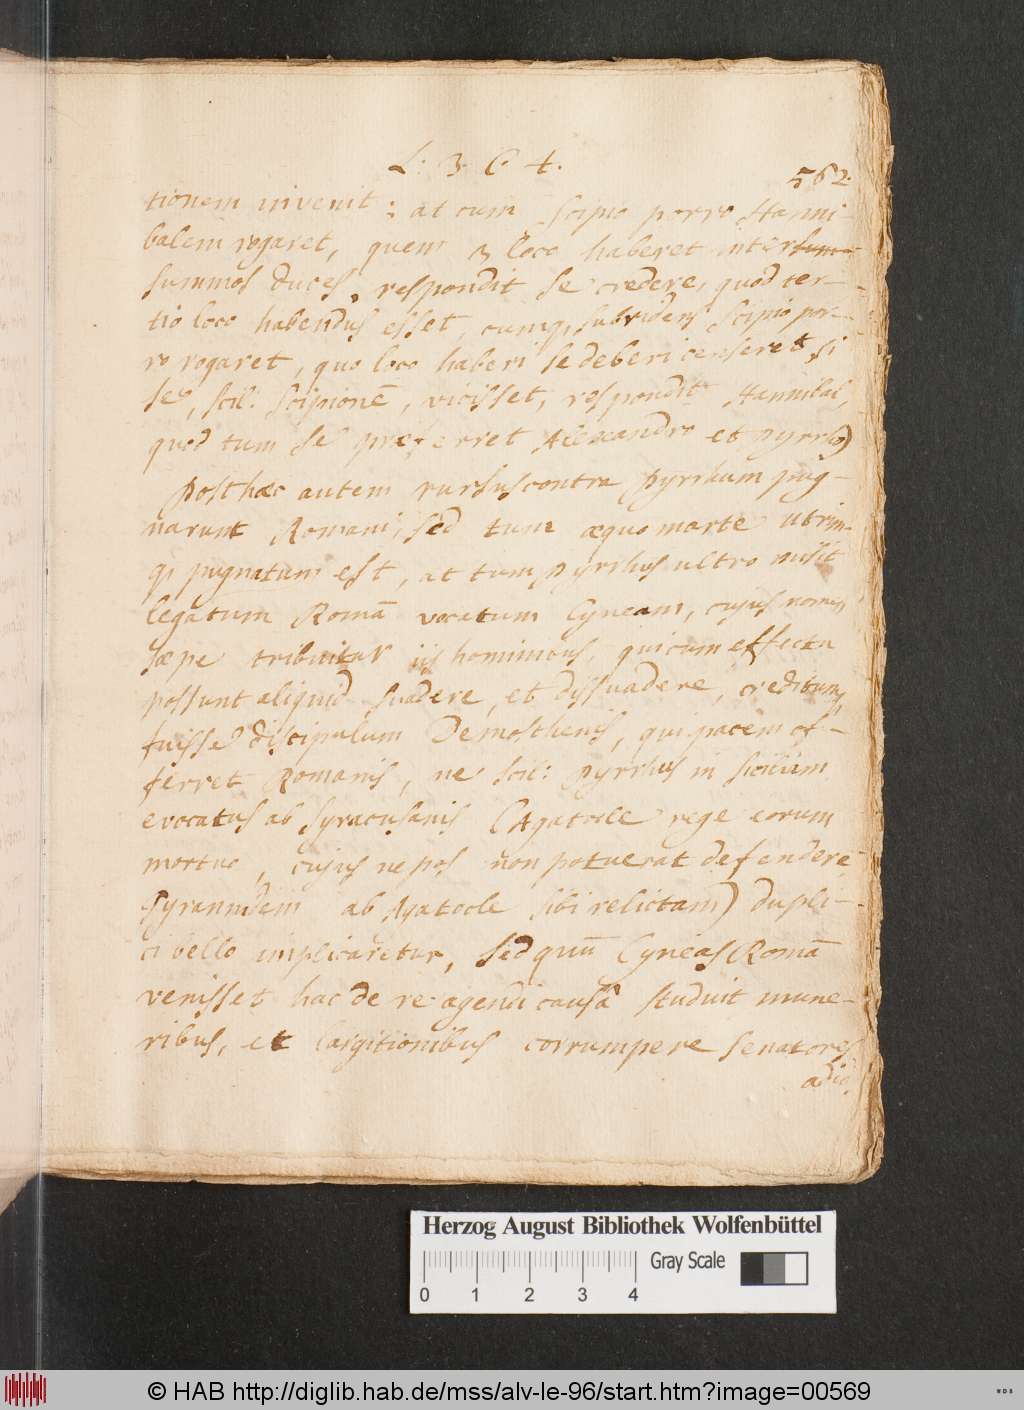 L: 3. C. 4.
562.
tionem invenit: at cum Scipio porro Hanni-
balem rogaret, quem 3 loco haberet inter sum-
summos duces, respondit se credere, quod ter-
tio loco habendus esset, cumq, subridens Scipio por-
ro rogaret, quo loco haberi se deberi censeret, si
se, scil: Scipionē, vicisset, respondit Hannibal,
quod tum se præferret Alexandro et Pyrrho)
Posthæc autem rursus contra Pyrrhum pug-
narunt Romani, sed tum æquo marte utrim-
q, pugnatum est, at tum Pyrrhus ultro misit
legatum Romā vocatum Cyneam, cujus nomen
sæpe tribuitur iis hominibus, qui cum effectu
possunt aliquid suadere, et dissuadere, creditum,
fuisse discipulum Demosthenis, qui pacem of-
ferret Romanis, ne scil: Pyrrhus in Siciliam
evocatus ab Syracusanis (Agatocle rege eorum
mortuo, cujus nepos non potuerat defendere
tyrannidem ab Agatocle sibi relictam) dupli-
ci bello implicaretur, sed quū Cyneas Romā
venisset hac de re agendi causâ studuit mune-
ribus, et largitionibus corrumpere senatores
adio
Herzog August Bibliothek Wolfenbüttel
Gray Scale
0 1 2 3 4
© HAB http://diglib.hab.de/mss/alv-le-96/start.htm?image=00569